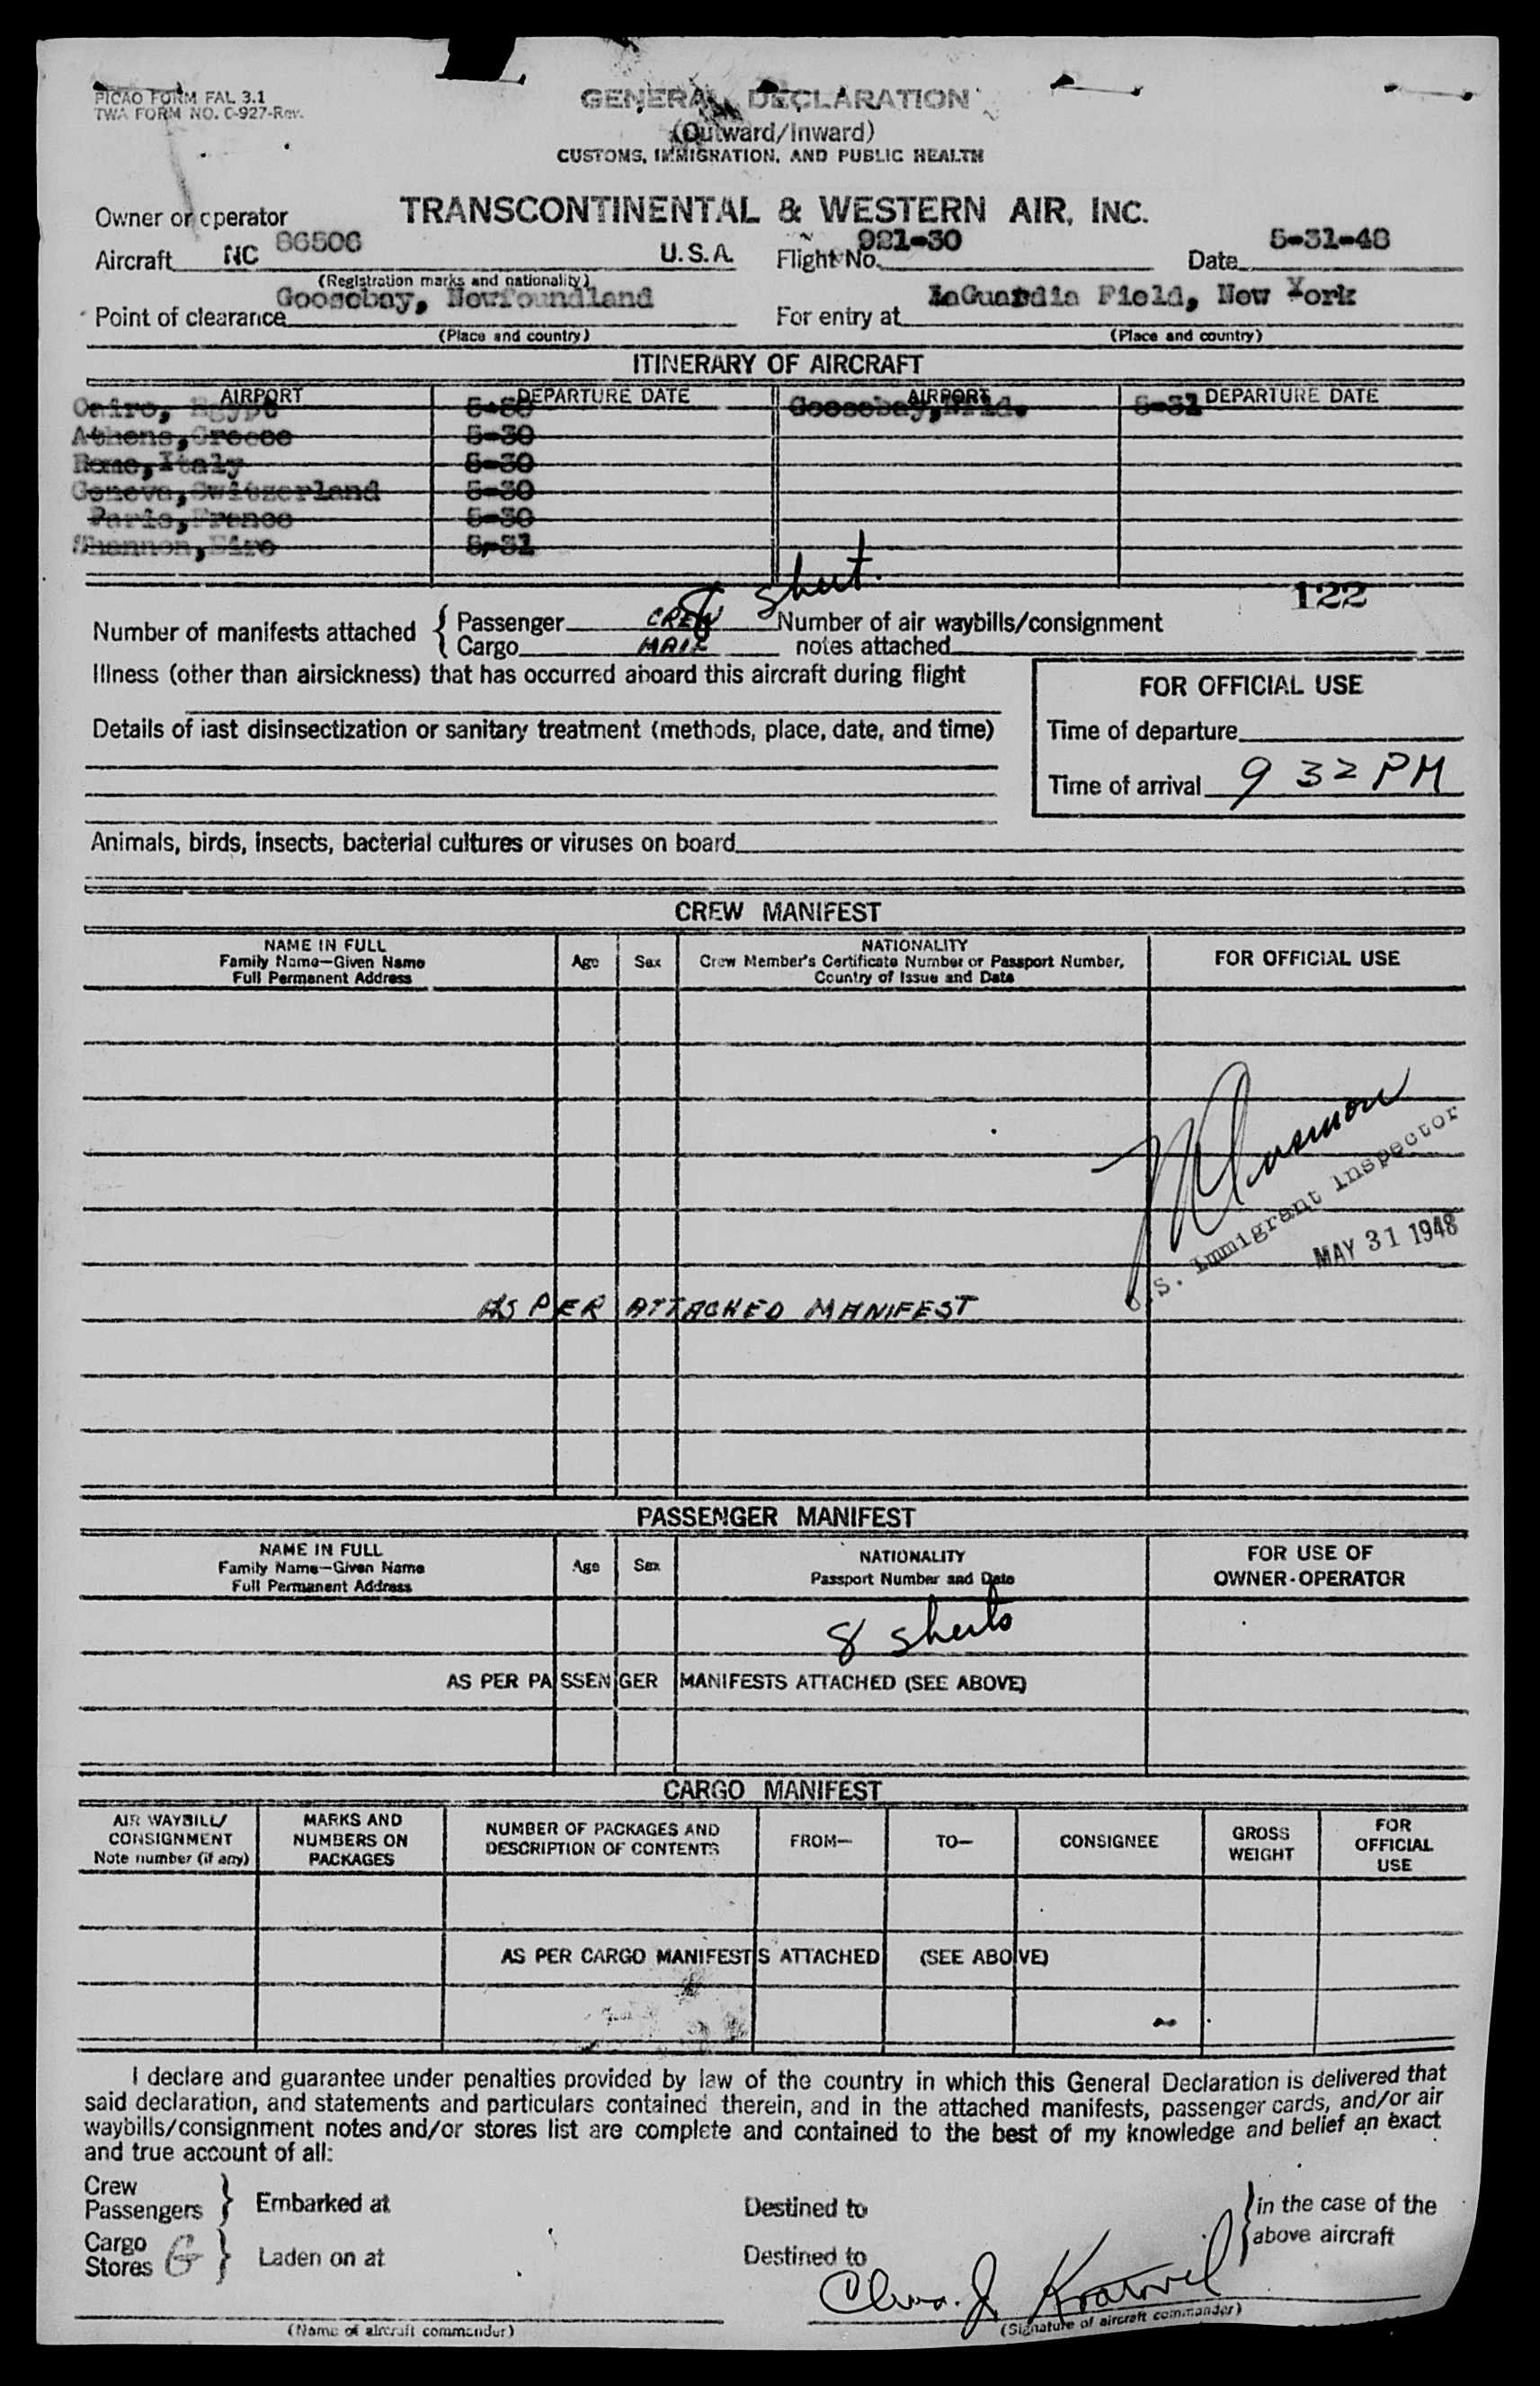 PICAO FORM FAL 3.1
TWA FORM NO. C-927-Rev.
GENERAL DECLARATION
(Outward/Inward)
CUSTOMS, IMMIGRATION, AND PUBLIC HEALTH
Owner or operator TRANSCONTINENTAL & WESTERN AIR, INC.
Aircraft NC 86506 U.S.A. Flight No. 921-30 Date 5-31-48
(Registration marks and nationality)
Point of clearance Goosebay, Newfoundland For entry at LaGuardia Field, New York
(Place and country) (Place and country)
ITINERARY OF AIRCRAFT
AIRPORT DEPARTURE DATE AIRPORT DEPARTURE DATE
Cairo, Egypt 5-30 Goosebay, Nfld. 5-31
Athens, Greece 5-30
Rome, Italy 5-30
Geneva, Switzerland 5-30
Paris, France 5-30
Shannon, Eire 5-31
8 sheet.
122
Number of manifests attached { Passenger CREW Number of air waybills/consignment
Cargo MAIL notes attached
Illness (other than airsickness) that has occurred aboard this aircraft during flight
FOR OFFICIAL USE
Details of last disinsectization or sanitary treatment (methods, place, date, and time)
Time of departure
Time of arrival 9 32 PM
Animals, birds, insects, bacterial cultures or viruses on board
CREW MANIFEST
NAME IN FULL
Family Name—Given Name
Full Permanent Address
Age Sex
NATIONALITY
Crew Member's Certificate Number or Passport Number,
Country of Issue and Date
FOR OFFICIAL USE
U.S. Immigrant Inspector
MAY 31 1948
AS PER ATTACHED MANIFEST
PASSENGER MANIFEST
NAME IN FULL
Family Name—Given Name
Full Permanent Address
Age Sex
NATIONALITY
Passport Number and Date
FOR USE OF
OWNER-OPERATOR
8 sheets
AS PER PASSENGER MANIFESTS ATTACHED (SEE ABOVE)
CARGO MANIFEST
AIR WAYBILL/
CONSIGNMENT
Note number (if any)
MARKS AND
NUMBERS ON
PACKAGES
NUMBER OF PACKAGES AND
DESCRIPTION OF CONTENTS
FROM—
TO—
CONSIGNEE
GROSS
WEIGHT
FOR
OFFICIAL
USE
AS PER CARGO MANIFESTS ATTACHED (SEE ABOVE)
I declare and guarantee under penalties provided by law of the country in which this General Declaration is delivered that
said declaration, and statements and particulars contained therein, and in the attached manifests, passenger cards, and/or air
waybills/consignment notes and/or stores list are complete and contained to the best of my knowledge and belief an exact
and true account of all:
Crew
Passengers } Embarked at Destined to } in the case of the
above aircraft
Cargo
Stores G } Laden on at Destined to
Chas. J. Kratovil
(Name of aircraft commander) (Signature of aircraft commander)